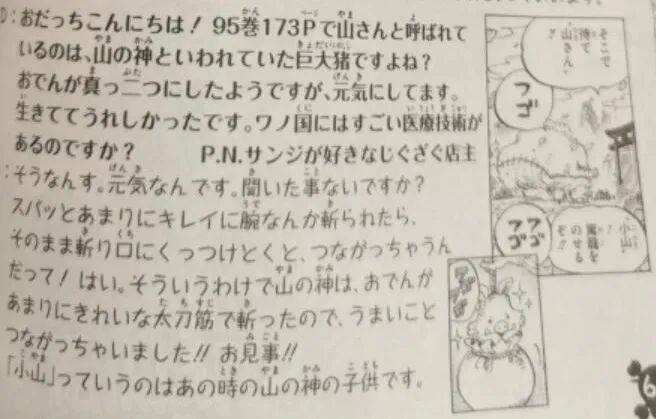 D:おだっちこんにちは! 95巻173Pで山さんと呼ばれて
いるのは、山の神といわれていた巨大猪ですよね?
おでんが真っ二つにしたようですが、元気にしてます。
生きててうれしかったです。ワノ国にはすごい医療技術が
あるのですか? P.N.サンジが好きなじぐざぐ店主
:そうなんす。元気なんです。聞いた事ないですか?
スパッとあまりにキレイに腕なんか斬られたら、
そのまま斬り口にくっつけとくと、つながっちゃうん
だって! はい。そういうわけで山の神は、おでんが
あまりにきれいな太刀筋で斬ったので、うまいこと
つながっちゃいました!! お見事!!
「小山」っていうのはあの時の山の神の子供です。
そこで
待て
山さん!
フゴ
小山!
駕籠を
のせる
ぞ!!
フゴ
フゴ